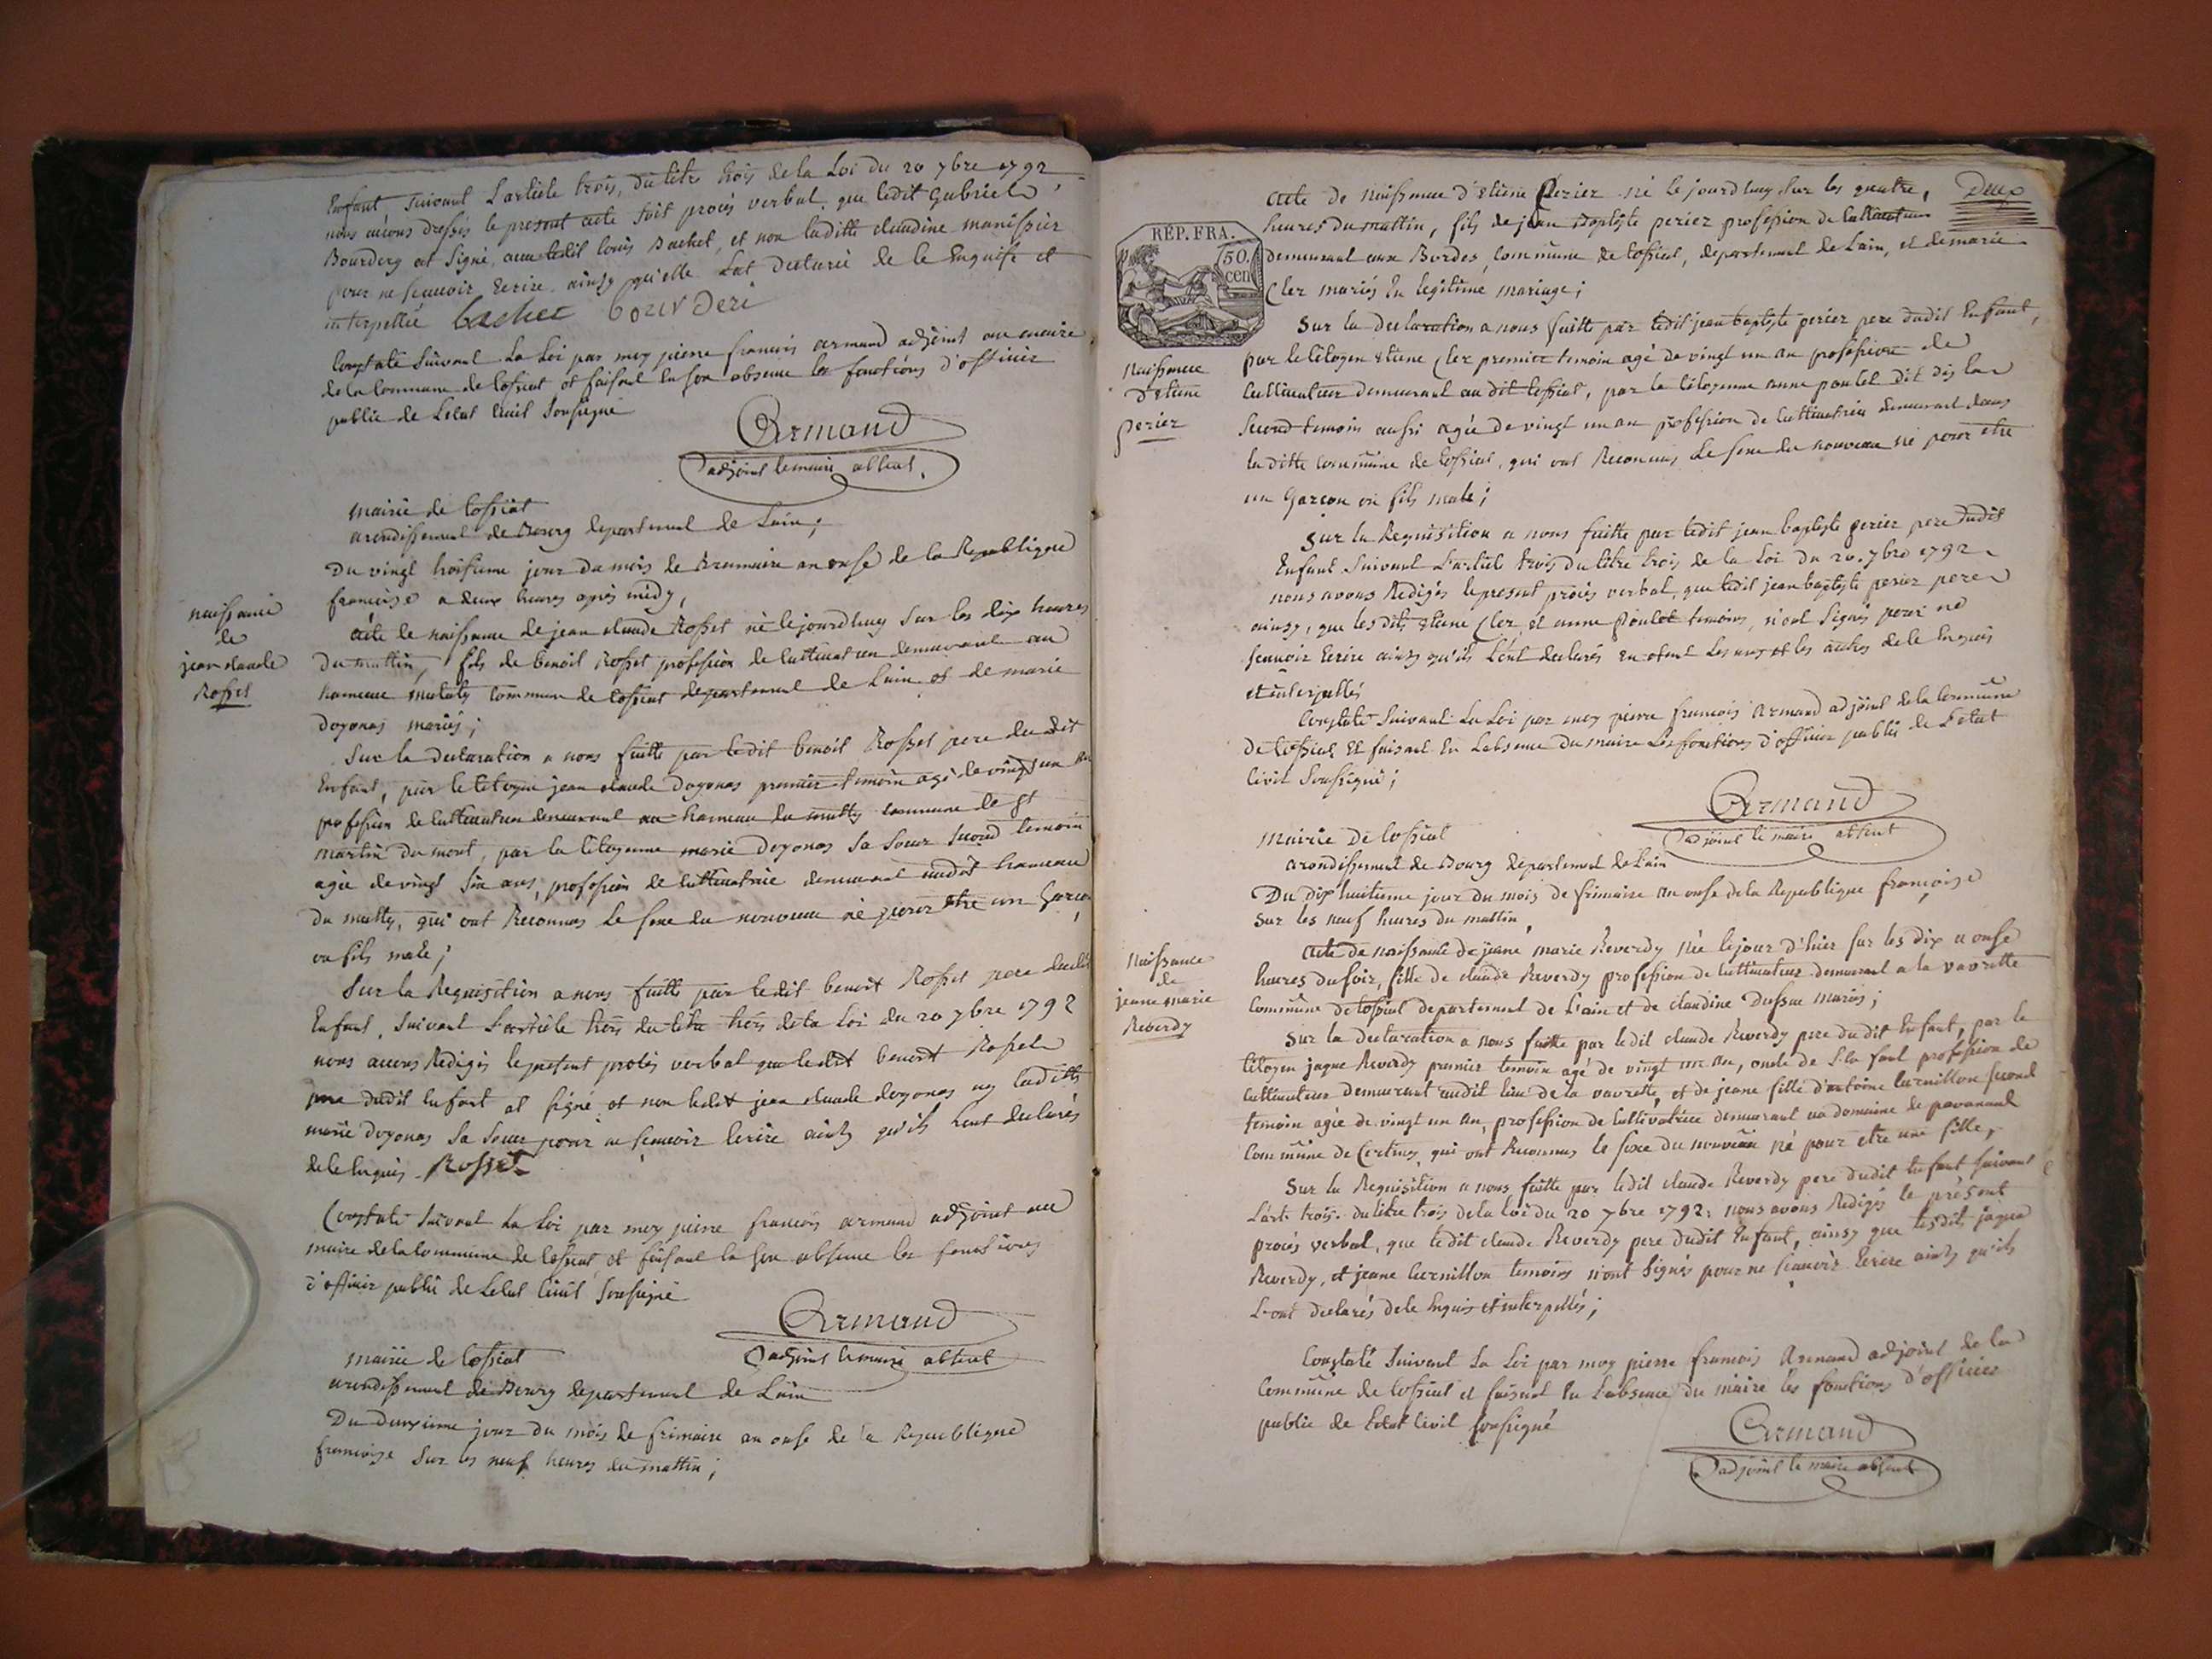 Enfant suivant L'article trois, du titre trois de la Loi du 20 7bre 1792,
nous avons dressés le présent acte soit procés verbal que ledit Gabriel
Bourdery at signé, avec ledit Louis Bachet, et non laditte claudine manissier
pour ne sçauvoir Ecrire ainsy qu'elle Lat declarée de Le Enquise et
interpellée bachet bourderi
Constaté suivant La Loi par moy pierre francois armand adjoint au maire
de la Commune de tossiat et faisant En son absence les fonctions d'officier
public de Letat Civil soussigné
Armand
adjoint le maire absent.
mairie de tossiat
arondissement de Bourg departement de Lain;
Du vingt troisieme jour du mois de Brumaire an onse de la Republique
françoise a deux heures apres midy,
naissance
de
jean claude
Rosset
acte de naissance de jean claude Rosset né le jourdhuy sur les dix heures
du mattin, fils de benoit Rosset profession de Cultivateur demeurant au
hameau commune de tossiat departement de Lain et de marie
doyonas mariés;
Sur la declaration a nous faitte par ledit benoit Rosset pere du dit
Enfant, par le Citoyen jean claude Doyonas premier temoin agé de vingt un an
profession de Cultivateur demeurant au hameau du commune de st
martin du mont, par la Citoyenne marie Doyonas sa soeur second temoin
agée de vingt six ans, profession de Cultivatrice demeurant audit hameau
du qui ont Reconnus le sexe du nouveau né pour etre un Garçon
ou fils male;
Sur la Requisition a nous faitte par ledit benoit Rosset pere dudit
Enfant, suivant L'article trois du titre trois de la Loi du 20 7bre 1792
nous avons Redigés le présent procés verbal que ledit benoit Rosset
pere dudit Enfant at signé et non ledit jean claude doyonas ny laditte
marie Doyonas sa soeur pour ne sçauvoir Ecrire ainsy qu'ils Lont declarés
de Le Enquis Rosset
Constaté suivant La Loi par moy pierre françois armand adjoint au
maire de la Commune de tossiat et faisant En son absence les fonctions
d'officier public de Letat Civil soussigné
Armand
adjoint le maire absent
mairie de tossiat
arondissement de Bourg departement de Lain
Du deuxieme jour du mois de frimaire an onse de la Republique
françoise sur les neuf heures du mattin;
Deux
REP. FRA.
50.
cen
acte de naissance d'Etiene Perier né le jourdhuy sur les quatre
heures du mattin, fils de jean Baptiste perier profession de Cultivateur
demeurant aux Bordes, commune de tossiat, departement de Lain, et de marie
Cler mariés En legitime mariage;
Naissance
d'Etiene
perier
Sur la declaration a nous faitte par ledit jean baptiste perier pere dudit Enfant,
par le Citoyen Etiene Cler premier temoin agé de vingt un an profession de
Cultivateur demeurant au dit tossiat, par la Citoyenne anne poulet dit
second temoin aussi agée de vingt un an profession de Cultivatrice demeurant dans
laditte commune de tossiat, qui ont Reconnus Le sexe du nouveau né pour etre
un Garcon ou fils male;
Sur la Requisition a nous faitte par ledit jean baptiste perier pere dudit
Enfant suivant L'article trois du titre trois de la Loi du 20. 7bre 1792
nous avons Redigés le present procés verbal, que ledit jean baptiste perier pere
ainsy, que lesdits Etiene Cler, et anne Poulet temoins, n'ont signés pour ne
sçauvoir Ecrire ainsy qu'ils L'ont declarés Les uns et les autres de le Enquis
et interpellés
Constaté suivant La Loi par moy pierre francois Armand adjoint de la Commune
de tossiat et faisant En Labsence du maire Les fonctions d'officier public de L'etat
Civil soussigné;
Armand
adjoint le maire absent
Mairie De tossiat
arondissement de Bourg departement de Lain
Du dix huitieme jour du mois de frimaire an onse de la Republique françoise
sur les neuf heures du mattin,
Naissance
de
jeane marie
Reverdy
Acte de naissance de jeane marie Reverdy née le jour d'hier sur les dix a onse
heures du soir, fille de claude Reverdy profession de Cultivateur demeurant a la vavrette
commune de tossiat departement de L'ain et de claudine mariés;
Sur la declaration a nous faitte par ledit claude Reverdy pere dudit Enfant, par le
Citoyen jaque Reverdy premier temoin agé de vingt un an, oncle de profession de
Cultivateur demeurant audit lieu de la vavrette, et de jeane fille d'antoine second
temoin agée de vingt un an, profession de Cultivatrice demeurant au domaine de
Commune de Certines, qui ont Reconnus le sexe du nouveau né pour etre une fille,
Sur la Requisition a nous faitte par ledit claude Reverdy pere dudit Enfant suivant
L'art. trois. du titre trois de la loi du 20 7bre 1792; nous avons Redigés le présent
procés verbal, que ledit claude Reverdy pere dudit Enfant, ainsy que lesdits jaque
Reverdy, et jeane temoins n'ont signés pour ne sçauvoir Ecrire ainsy qu'ils
L'ont declarés de le Enquis et interpellés;
Constaté suivant La Loi par moy pierre francois Armand adjoint de la
Commune de tossiat et faisant En L'absence du maire les fonctions d'officier
public de L'etat Civil soussigné
Armand
adjoint le maire absent